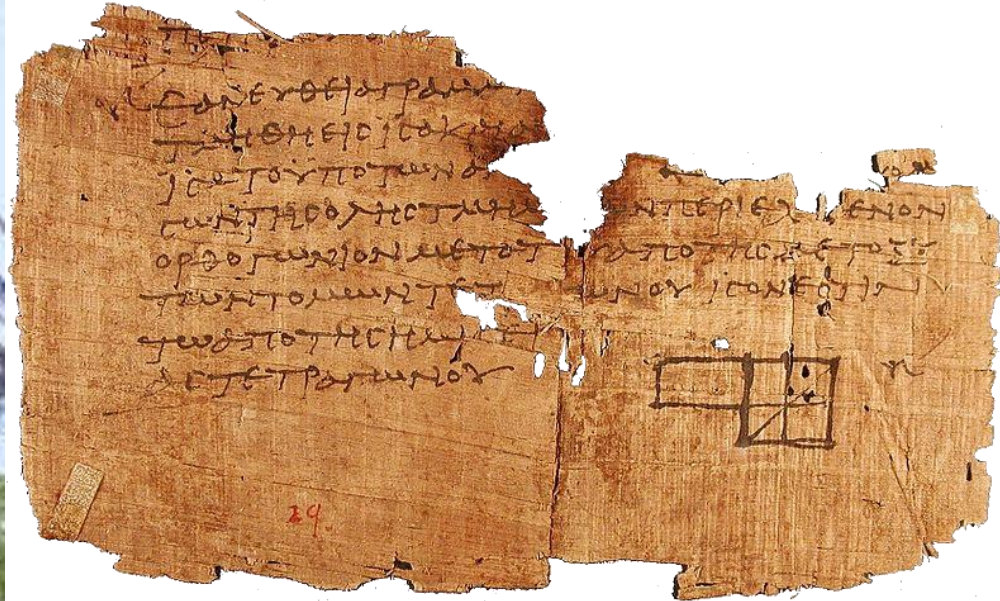 ΕΑΝΕΥΘΕΙΑΓΡΑΜΜ
ΤΜΗΘΗΕΙϹΙϹΑΚ
ΙϹΑΤΟΥΠΟΤΩΝΑ
ϹΩΝΤΗϹΟΛΗϹΤΜΗΜ ΝΠΕΡΙΕΧ ΕΝΟΝ
ΟΡΘΟΓΩΝΙΟΝΜΕΤΟΤ ΑΠΟΤΗϹΜΕΤΟΞΥ
ΤΩΝΤΟΜΩΝΤΕΤ ΩΝΟΥ ΙϹΟΝΕϹΤΙΝ
ΤΩΑΠΟΤΗϹΗΜΙ ΕΙ
ΑϹΤΕΤΡΑΓΩΝΟΥ
29.